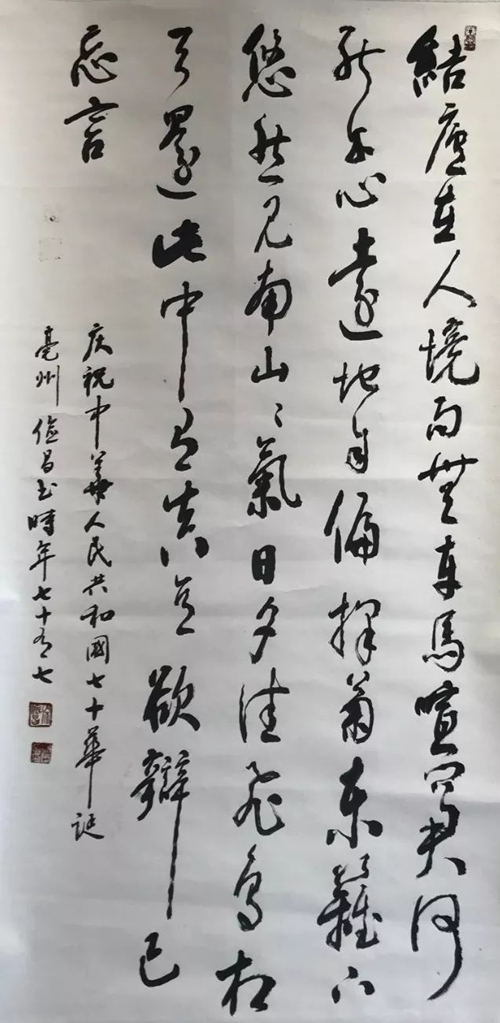 結廬在人境而無車馬喧問君何
能尔心遠地自偏採菊東籬下
悠然見南山〻氣日夕佳飛鳥相
与還此中有真意欲辯已
忘言
庆祝中華人民共和國七十華誕
亳州俭昌书時年七十有七